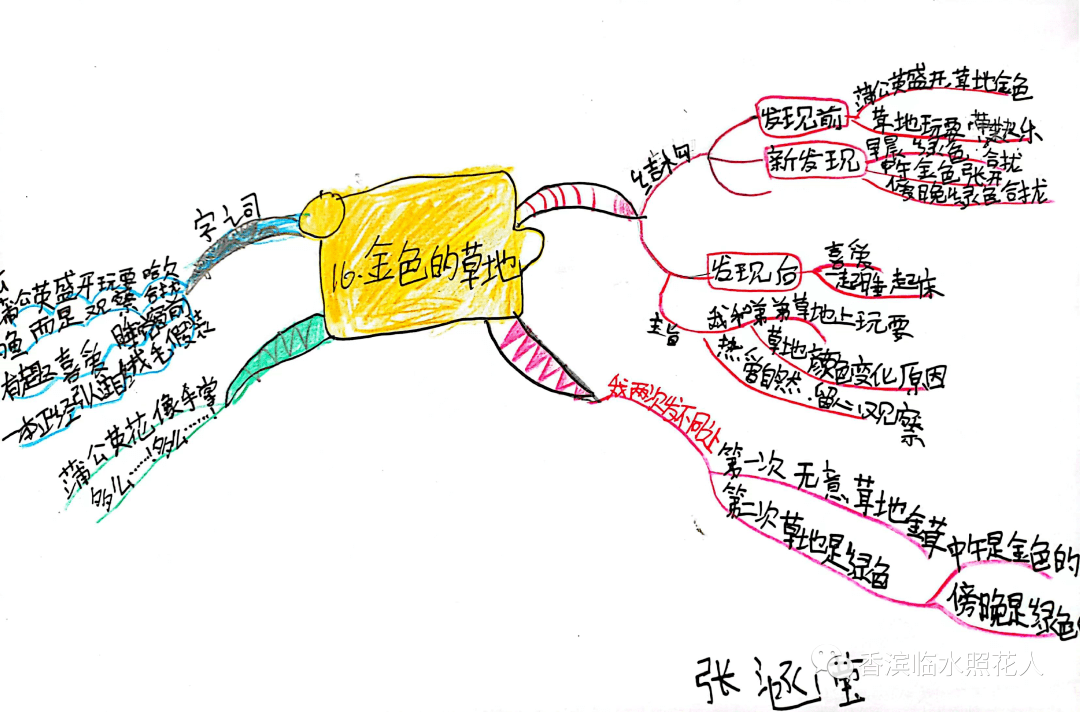 16.金色的草地
字词
蒲公英盛开玩耍
而是观察合拢
有趣喜爱
一本正经引人注目绒毛假装
蒲公英花像手掌
多么……多么……!
结构
发现前
蒲公英盛开,草地金色
草地玩耍,带来快乐
新发现
早晨 绿色 合拢
中午金色张开
傍晚绿色合拢
发现后
喜爱
一起睡起床
主旨
我和弟弟草地上玩耍
草地颜色变化原因
热爱自然.留心观察
我两次发不同之
第一次 无意,草地金
第二次草地是绿色
中午是金色的
傍晚是绿色
张涵
香滨临水照花人